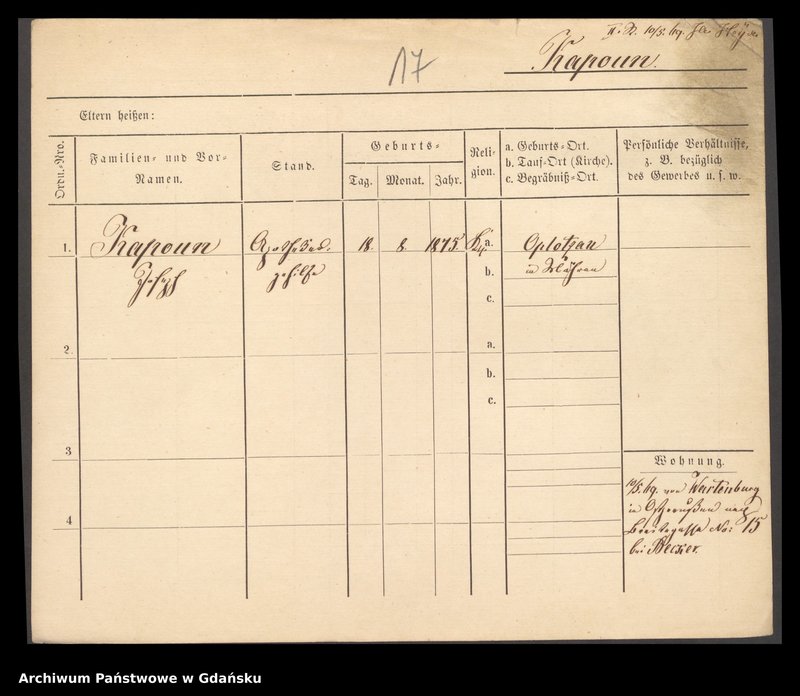 10/5. 69.
17
Kapoun.
Eltern heißen:
Ordn.-Nro.
Familien- und Vor-
Namen.
Stand.
Geburts-
Tag. Monat. Jahr.
Reli-
gion.
a. Geburts-Ort.
b. Tauf-Ort (Kirche).
c. Begräbniß-Ort.
Persönliche Verhältnisse,
z. B. bezüglich
des Gewerbes u. s. w.
1. Kapoun 18. 8. 1845 a.
Joseph gehilfe b. in Mähren
c.
2. a.
b.
c.
3
4
Wohnung.
10/5. 69. von Wartenburg
in Ostpreußen nach
Breitegasse No: 15
bei Becker.
Archiwum Państwowe w Gdańsku